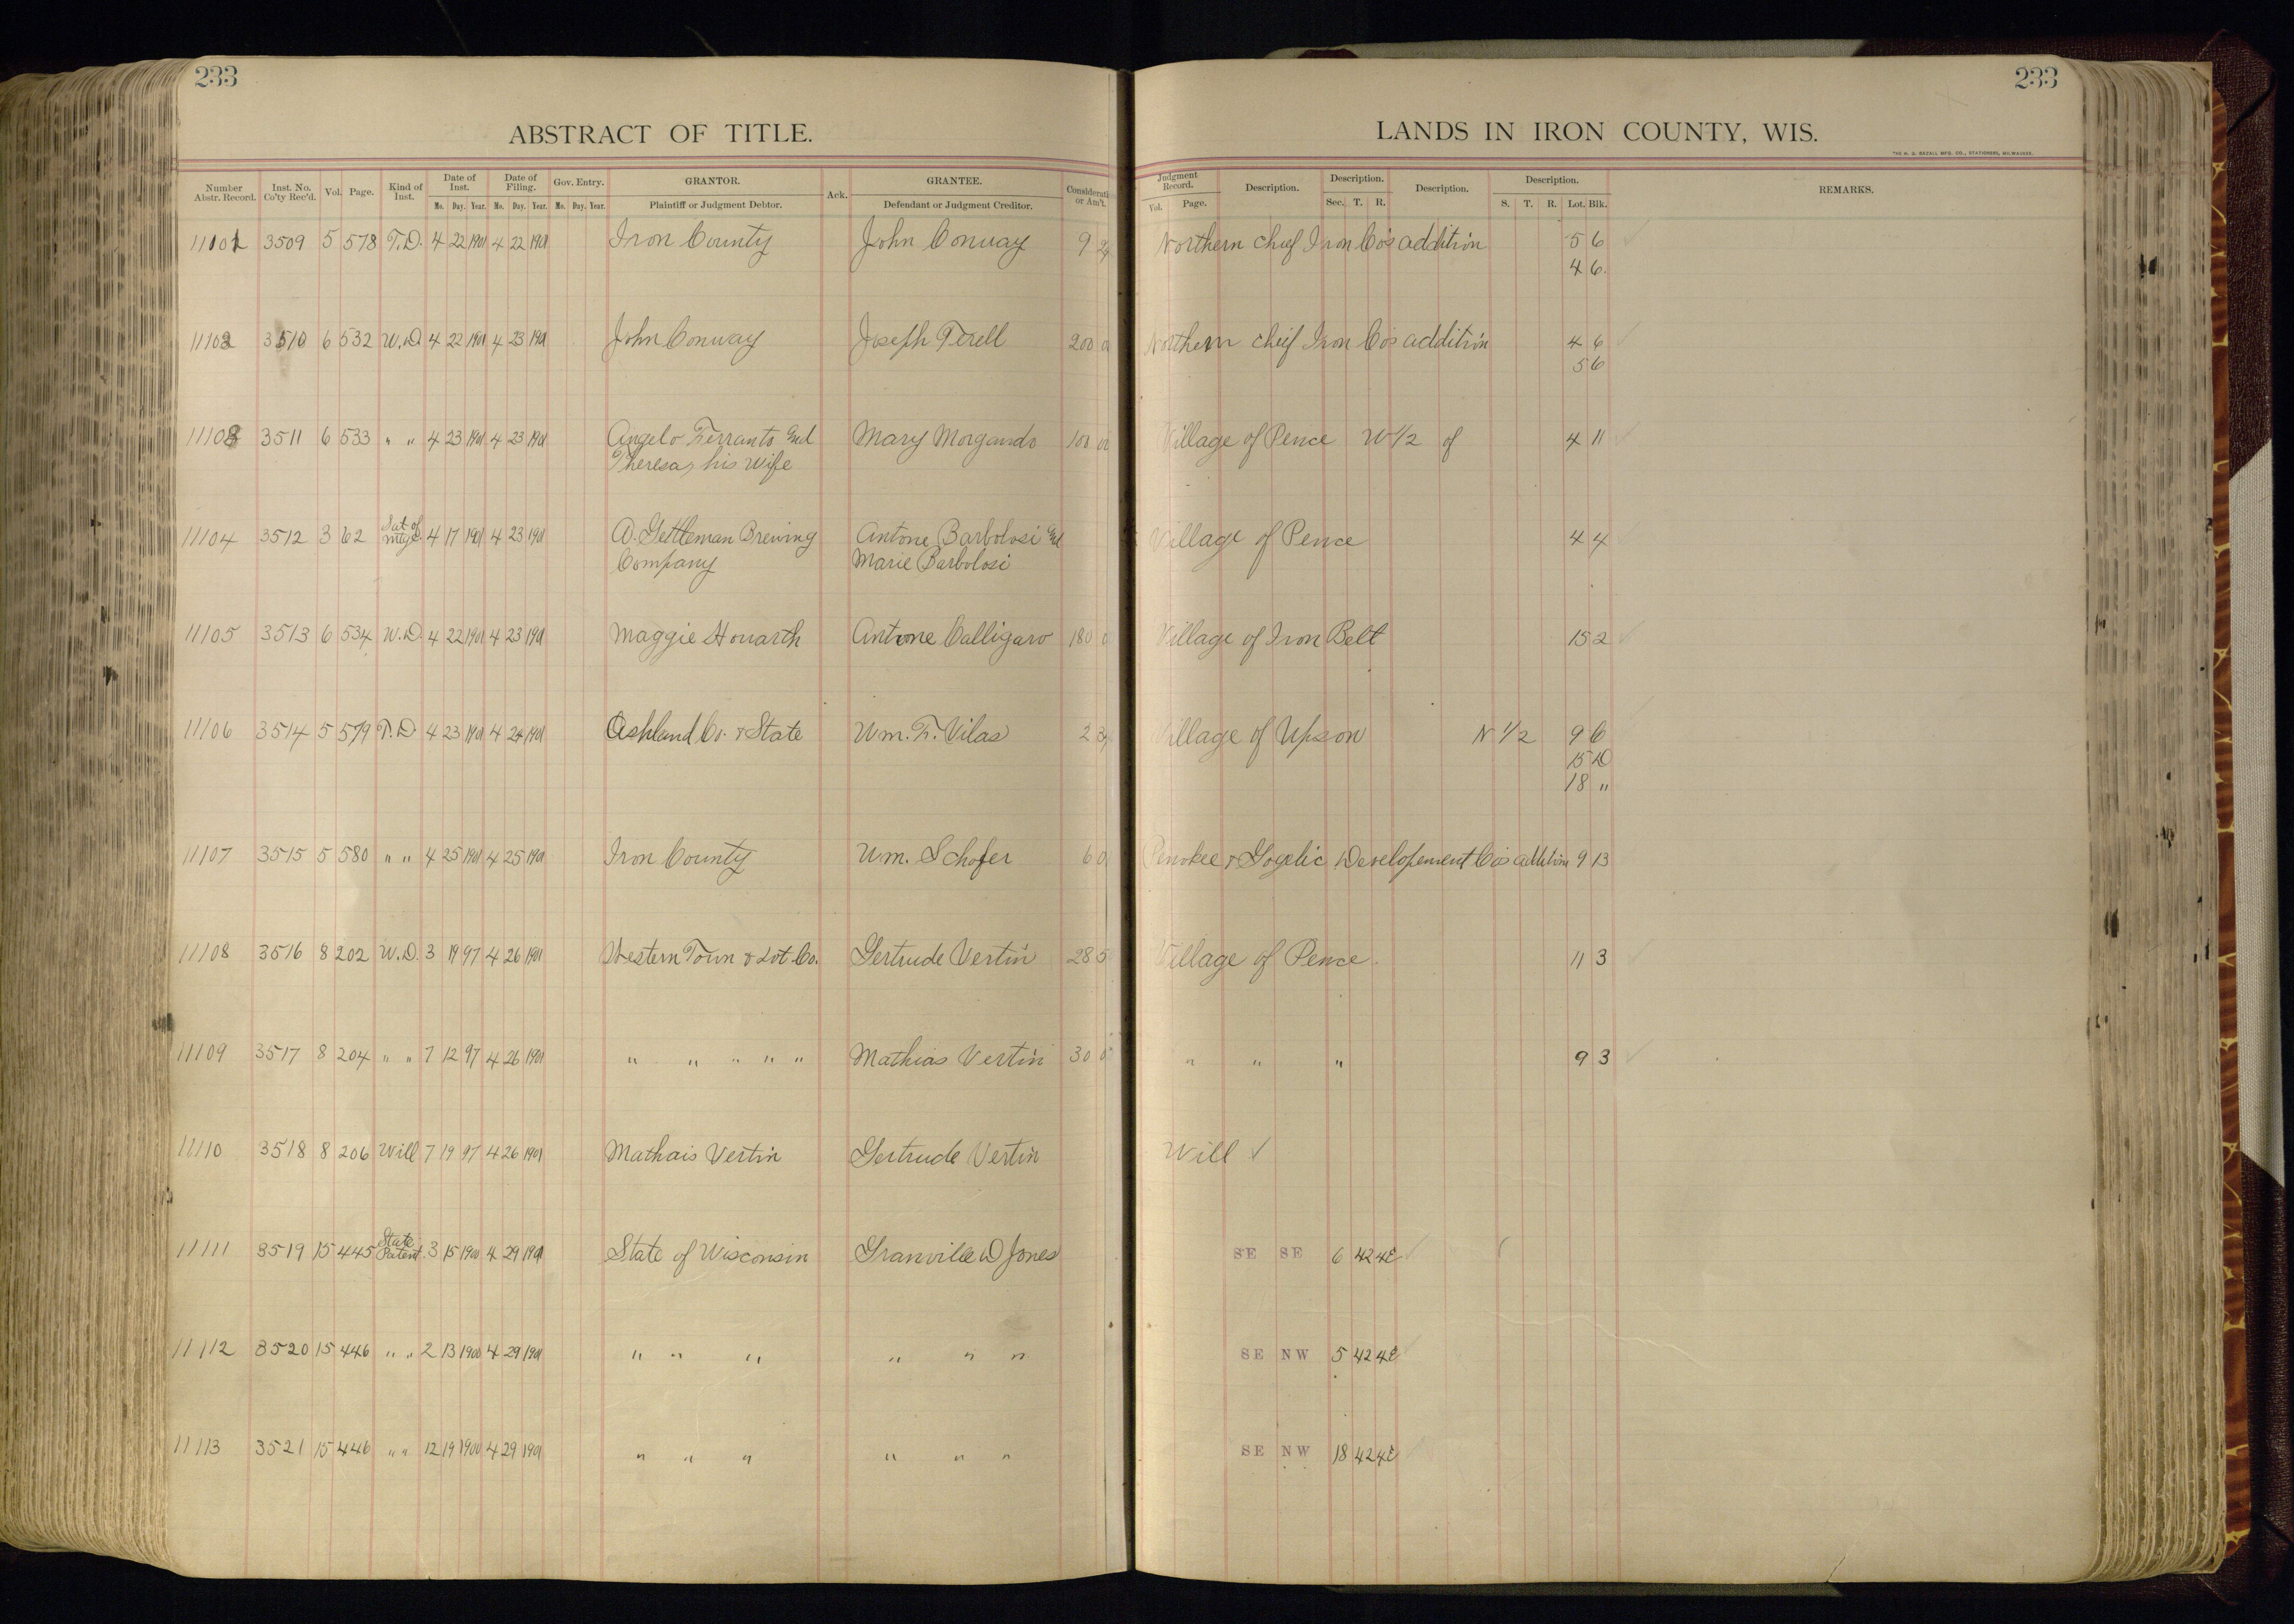 233
233
ABSTRACT OF TITLE.
LANDS IN IRON COUNTY, WIS.
THE H. G. RAZALL MFG. CO., STATIONERS, MILWAUKEE.
Number Abstr. Record. Inst. No. Co'ty Rec'd. Vol. Page. Kind of Inst. Date of Inst. Mo. Day. Year. Date of Filing. Mo. Day. Year. Gov. Entry. Mo. Day. Year. GRANTOR. Plaintiff or Judgment Debtor. Ack. GRANTEE. Defendant or Judgment Creditor. Considerati or Am't. Judgment Record. Vol. Page. Description. Description. Sec. T. R. Description. Description. S. T. R. Lot. Blk. REMARKS.
11101 3509 5 578 T.D. 4 22 1901 4 22 1901 Iron County John Conway 9 Northern chief Iron Co's addition 5 6
4 6
11102 3510 6 532 W.D. 4 22 1901 4 23 1901 John Conway Joseph Tirell 200 Northern chief Iron Co's addition 4 6
5 6
11103 3511 6 533 " " 4 23 1901 4 23 1901 Angelo Ferranto and Mary Morgando 100 Village of Pence W 1/2 of 4 11
Theresa, his wife
11104 3512 3 62 Sat of mtge. 4 17 1901 4 23 1901 A. Gettleman Brewing Antone Barbolosi and Village of Pence 4 4
Company Marie Barbolosi
11105 3513 6 534 W.D. 4 22 1901 4 23 1901 Maggie Howarth Antone Calligaro 180 Village of Iron Belt 15 2
11106 3514 5 579 T.D. 4 23 1901 4 24 1901 Ashland Co. & State Wm. F. Vilas 2 Village of Upson N 1/2 9 6
15 D
18 "
11107 3515 5 580 " " 4 25 1901 4 25 1901 Iron County Wm. Schofer 6 Penokee & Gogebic Developement Co's addition 9 13
11108 3516 8 202 W.D. 3 19 97 4 26 1901 Western Town & Lot Co. Gertrude Vertin 28 5 Village of Pence. 11 3
11109 3517 8 204 " " 7 12 97 4 26 1901 " " " " " Mathias Vertin 30 " " " 9 3
11110 3518 8 206 Will 7 19 97 4 26 1901 Mathais Vertin Gertrude Vertin Will ✓
11111 3519 15 445 State Patent. 3 15 1900 4 29 1901 State of Wisconsin Granville D Jones SE SE 6 42 4E
11112 3520 15 446 " " 2 13 1900 4 29 1901 " " " " " " SE NW 5 42 4E
11113 3521 15 446 " " 12 19 1900 4 29 1901 " " " " " " SE NW 18 42 4E